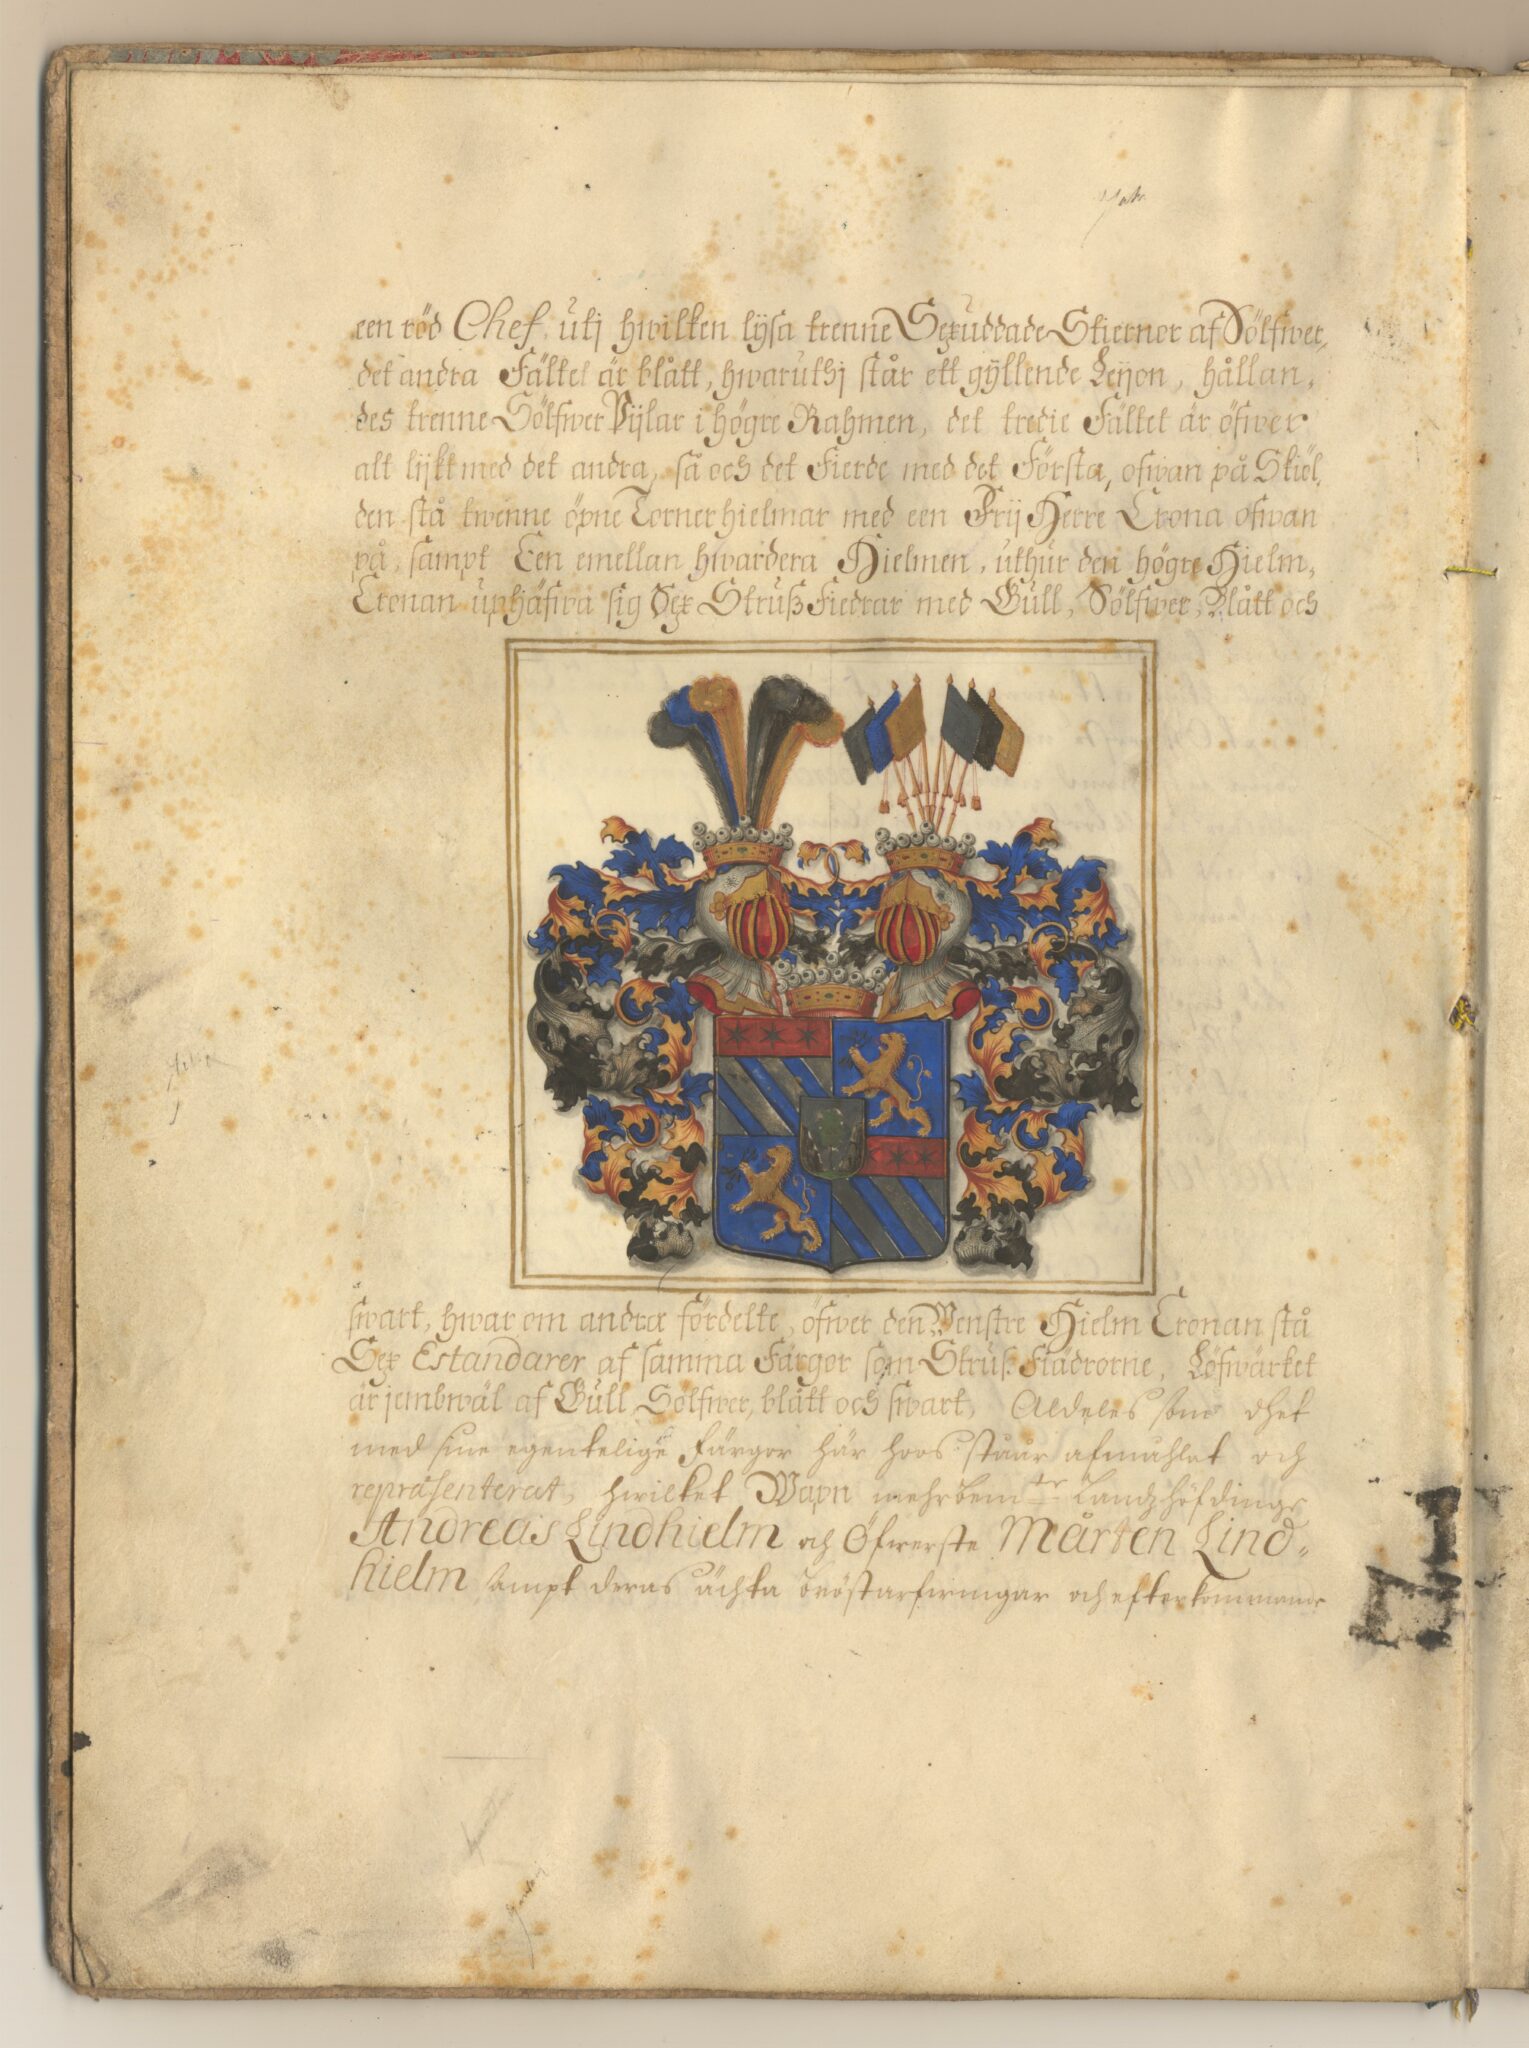 een röd Chef, utj hwilken lysa trenne Sexuddade Stiernor af Sölfwer,
det andra Fältet är blått, hwaruthj står ett gyllende Leijon, hållan,
des trenne Sölfwer Pijlar i högre Rahmen, det tredie Fältet är öfwer
alt lijkt med det andra, så och det Fierde med det Första, ofwan på Skiöl,
den stå twenne öpne Tornerhielmar med een Frij Herre Crona ofwan
på, sampt Een emellan hwardera Hielmen, uthur den högre Hielm,
Cronan uphäfwa sig Sex Struß Fiedrar med Gull, Sölfwer, Blått och
swart, hwar om andra fördelte, öfwer den Wenstre Hielm Cronan stå
Sex Estandarer af samma Färgor som Struß Fiädrorne, Löfwärket
är jembwäl af Gull, Sölfwer, blått och swart, Aldeles som dhet
med sine egentelige Färgor här hoos ståur afmåhlat och
repræsenterat, hwilket Wapn mehrbem:te Landzhöfdinge
Andreas Lindhielm och Öfwerste Mårten Lind„
hielm sampt deras ächta bröstarfwingar och efterkommande